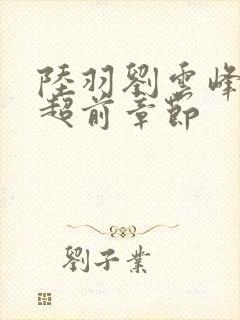 陸羽劉雲峰
超前章節
劉子業